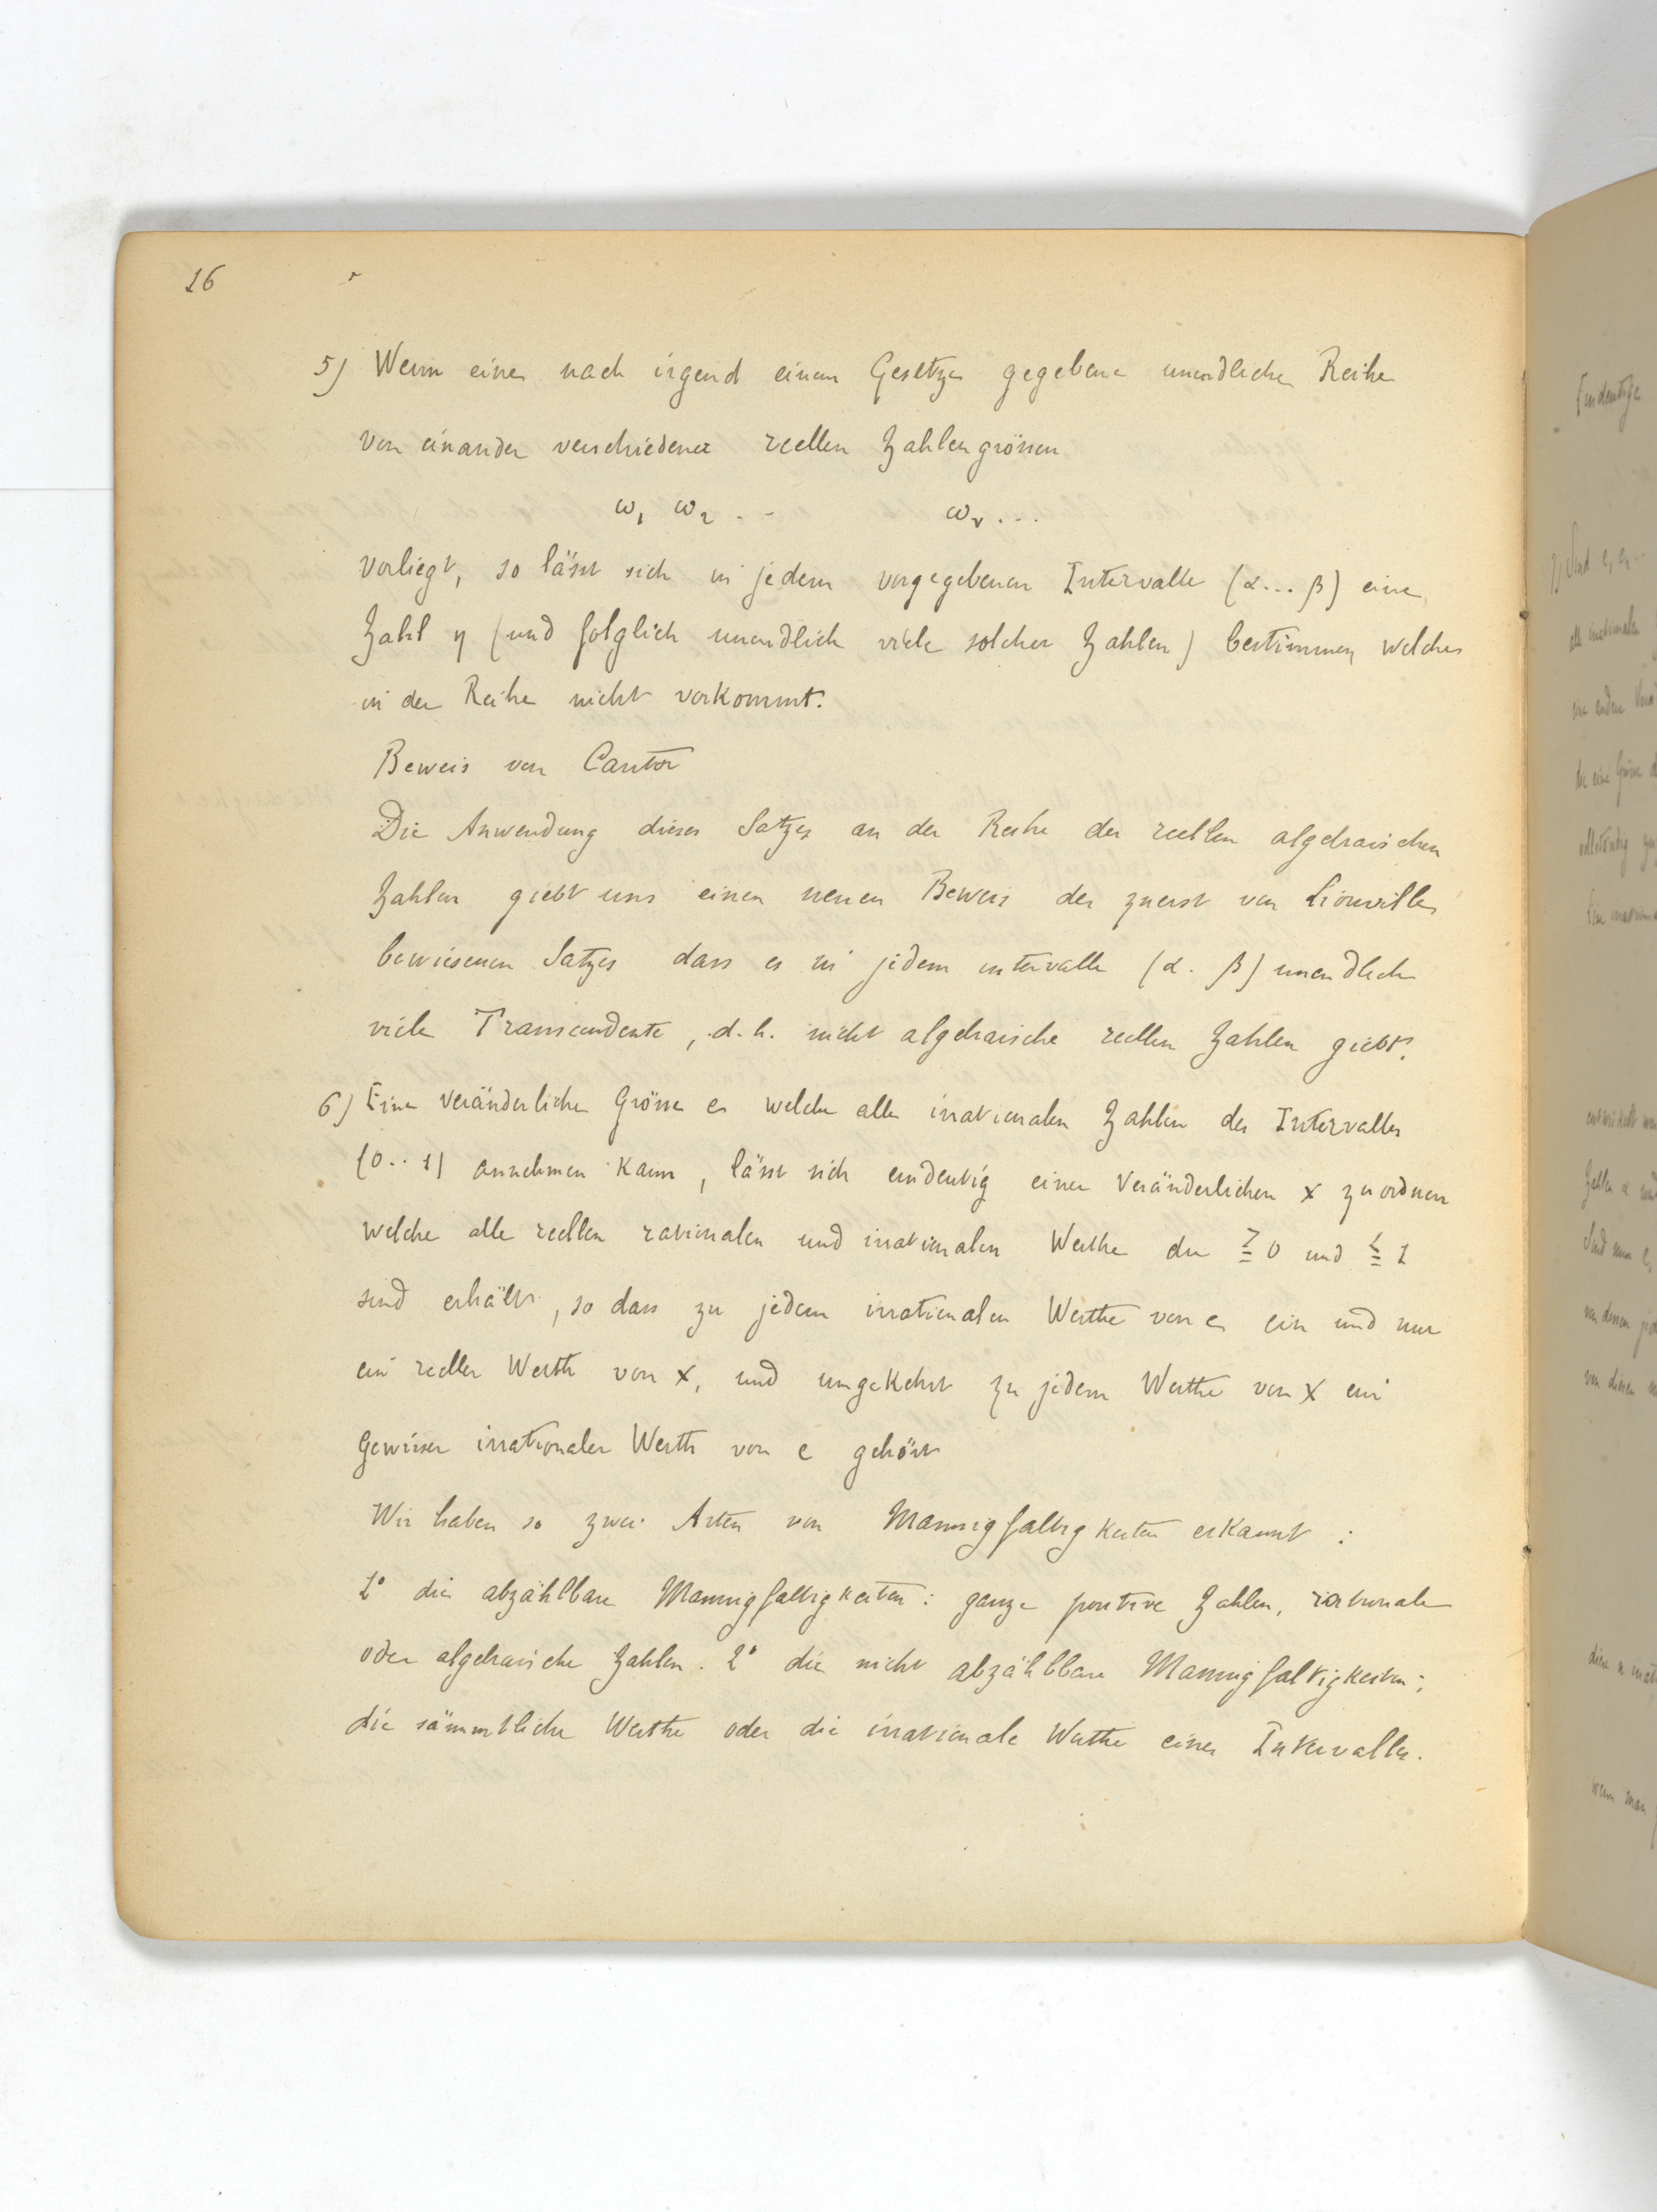 16
5) Wenn eine nach irgend einem Gesetze gegebene unendliche Reihe
von einander verschiedener reellen Zahlengrössen
ω₁ ω₂ . . ω_ν . . .
vorliegt, so lässt sich in jedem vorgegebenen Intervalle (α... β) eine
Zahl η (und folglich unendlich viele solcher Zahlen) bestimmen welche
in der Reihe nicht vorkommt.
Beweis von Cantor
Die Anwendung dieses Satzes an der Reihe der reellen algebraischen
Zahlen giebt uns einen neuen Beweis des zuerst von Liouville
bewiesenen Satzes dass es in jedem intervalle (α . β) unendlich
viele Transcendente, d.h. nicht algebraische reellen Zahlen giebt.
6) Eine veränderliche Grösse e welche alle irrationalen Zahlen des Intervalles
(0..1) annehmen kann, lässt sich eindeutig einer Veränderlichen x zuordnen
welche alle reellen rationalen und irrationalen Werthe die ≧ 0 und ≦ 1
sind erhält, so dass zu jedem irrationalen Werthe von e ein und nur
ein reeller Werth von x, und umgekehrt zu jedem Werthe von x ein
gewisser irrationaler Werth von e gehört
Wir haben so zwei Arten von Mannigfaltigkeiten erkannt :
1° die abzählbare Mannigfaltigkeiten : ganze positive Zahlen, rationale
oder algebraische Zahlen. 2° die nicht abzählbare Mannigfaltigkeiten ;
die sämmtliche Werthe oder die irrationale Werthe eines Intervalles.
Eindeutige
7) Sind e, e₁ ..
alle irrationalen
eine andere
die eine Grösse
vollständig
Eine
Zahlen α und
Sind nun e,
von denen
von diesen
wenn man